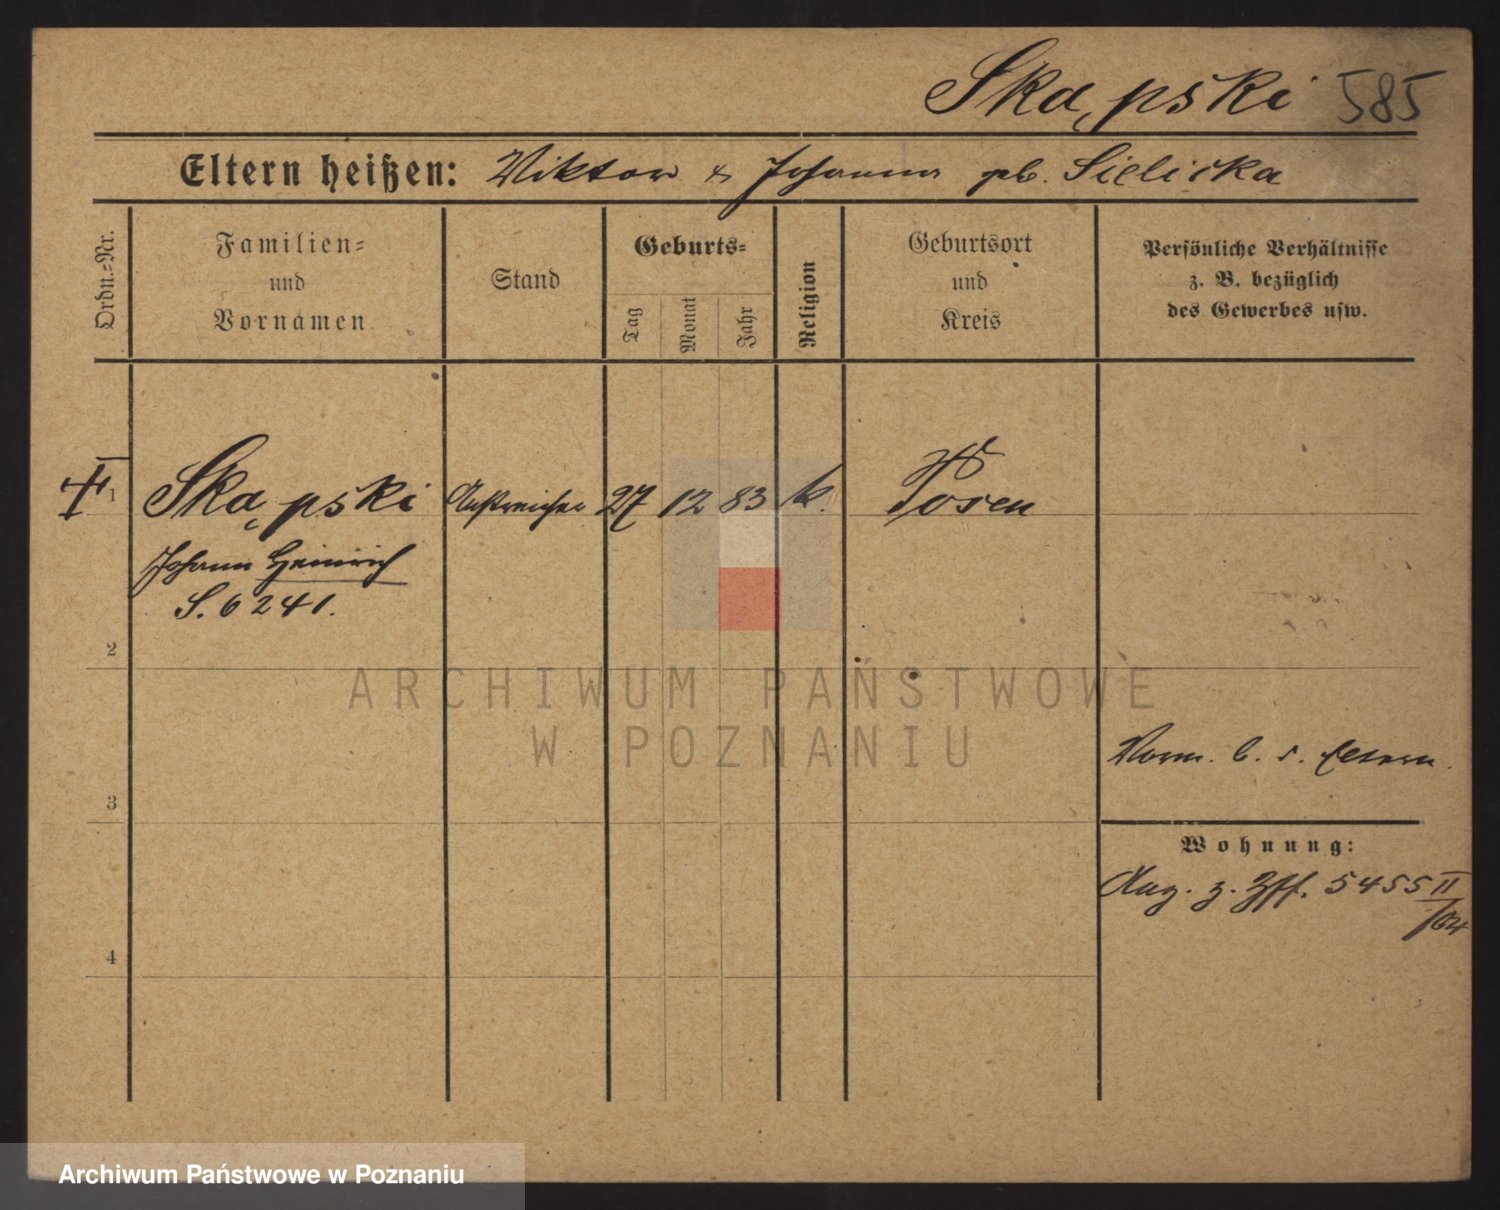 Skąpski 585
Eltern heißen: Viktor & Johanna geb. Sielicka
Ordn.-Nr.
Familien-
und
Vornamen
Stand
Geburts-
Tag
Monat
Jahr
Religion
Geburtsort
und
Kreis
Persönliche Verhältnisse
z. B. bezüglich
des Gewerbes usw.
1 Skąpski Anstreicher 27 12 83 k. Posen
Johann Heinrich
S. 6241.
2
ARCHIWUM PAŃSTWOWE
W POZNANIU
Vorm. b. s. Eltern.
3
Wohnung:
Aug. z. Zff. 5455 II
/04
4
Archiwum Państwowe w Poznaniu